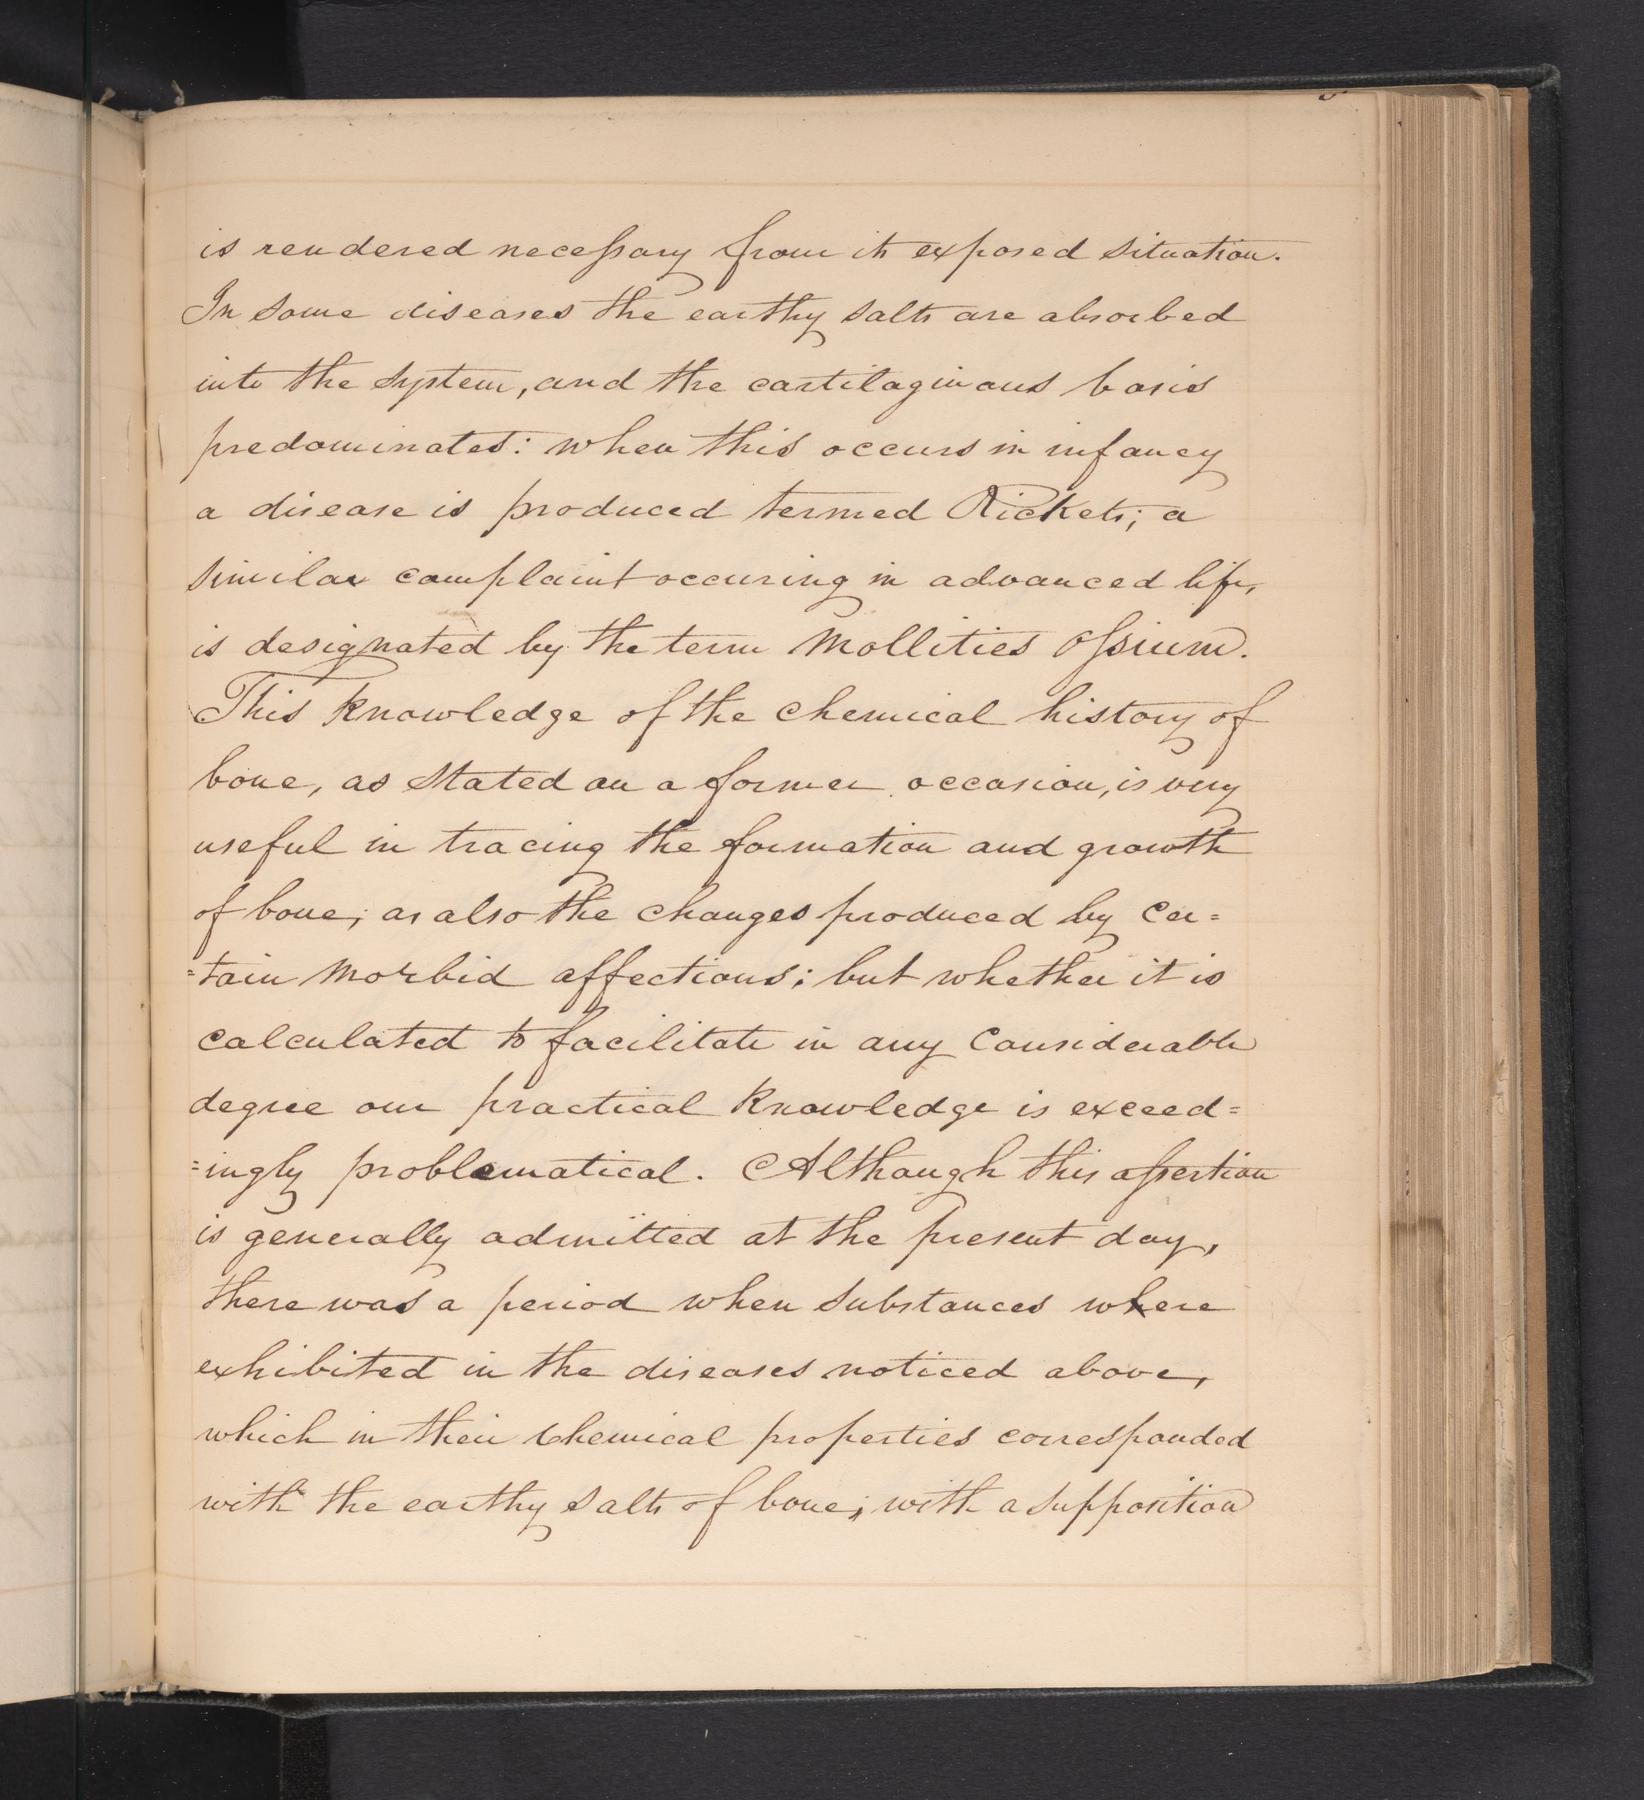 is rendered necessary from its exposed situation.
In some diseases the earthy salts are absorbed
into the system, and the cartilaginous basis
predominates: when this occurs in infancy
a disease is produced termed Rickets; a
similar complaint occuring in advanced life,
is designated by the term Mollities Ossium.
This knowledge of the chemical history of
bone, as stated on a former occasion, is very
useful in tracing the formation and growth
of bone; as also the changes produced by cer=
=tain morbid affections; but whether it is
calculated to facilitate in any considerable
degree our practical knowledge is exceed=
=ingly problematical. Although this assertion
is generally admitted at the present day,
there was a period when substances where
exhibited in the diseases noticed above,
which in their chemical properties corresponded
with the earthy salts of bone; with a supposition